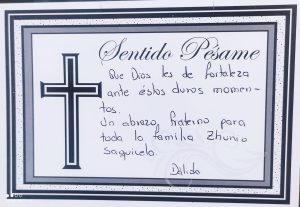 Sentido Pésame
Que Dios les de fortaleza
ante éstos duros momen-
tos.
Un abrazo fraterno para
toda la familia Zhunio
Saguicela.
Dalida